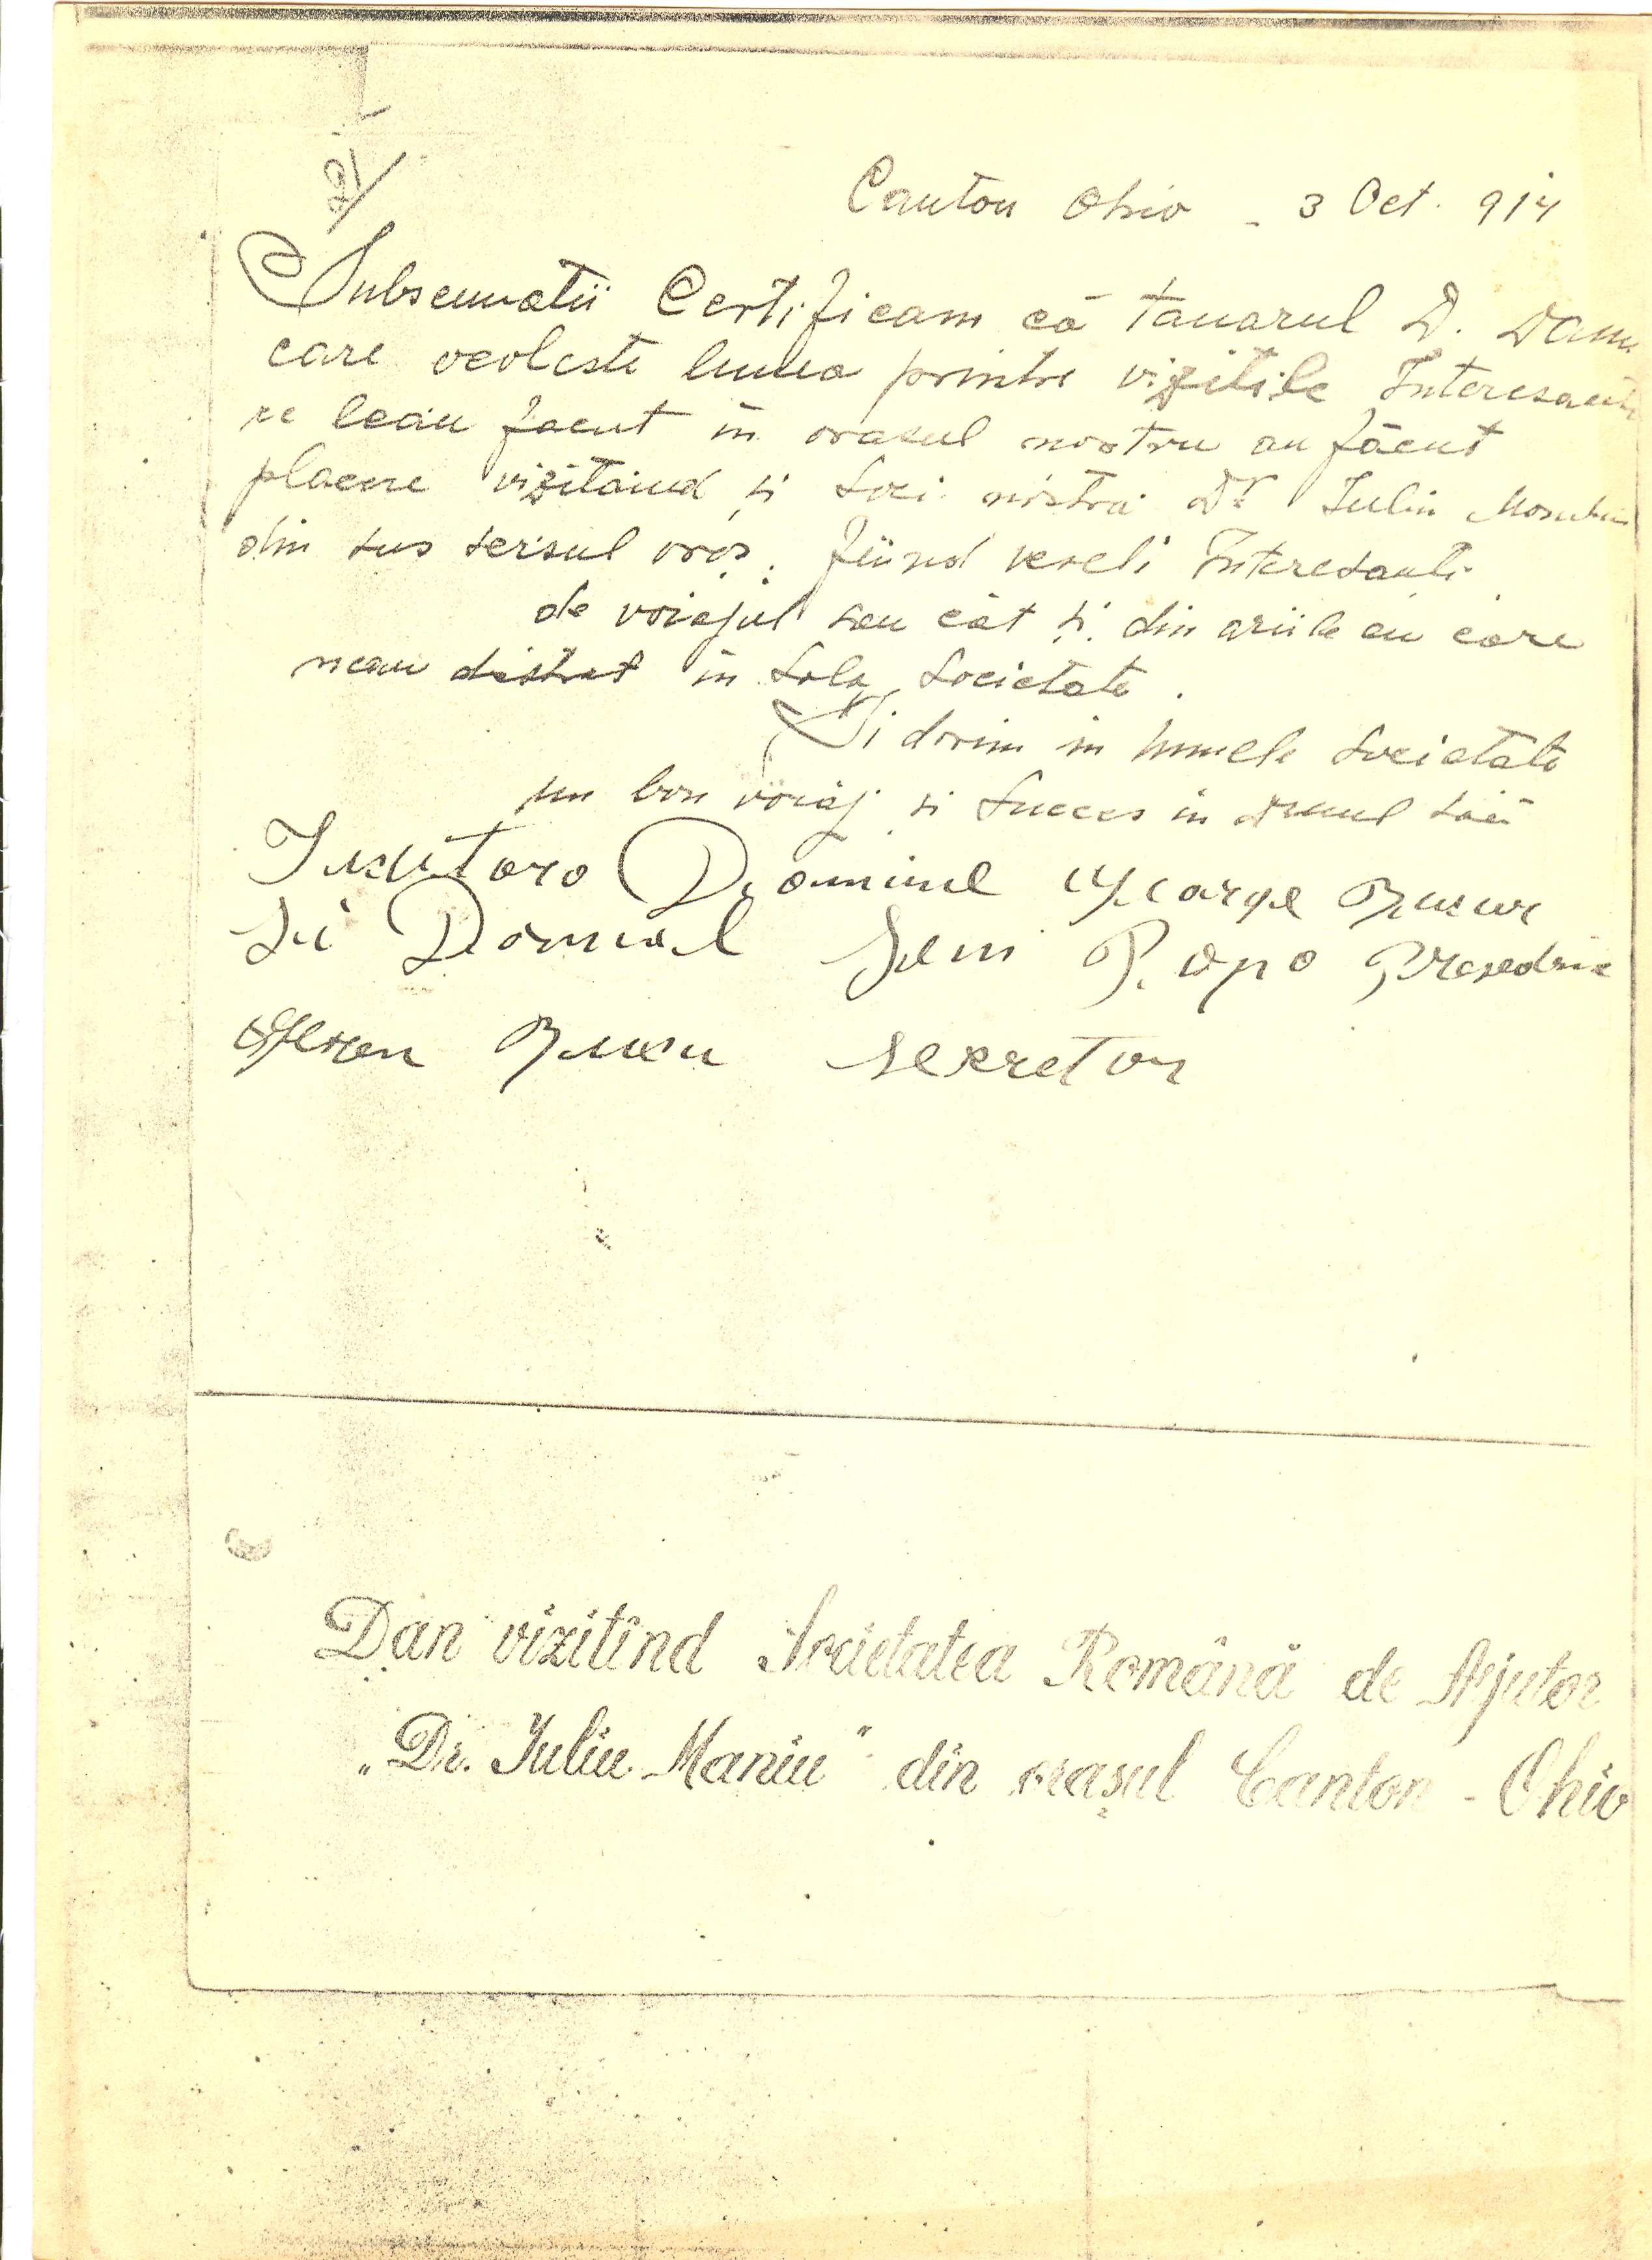 Canton Ohio - 3 Oct. 914
Subsemnatii Certificam că tanarul D. Dan
care ocoleste lumea printre vizitile Interesante
ce leau facut in orasul nostru au făcut
placere vizitand si Soci. nostra Dr Iuliu
din sus scrisul oraș. fiind veseli Interesanti
de voiajul seu cât și din ariile cu care
neau distrat in Sala Societate.
Ii dorim in numele Societate
un bon voiaj si Succes in drumul săŭ
Domnul George
Si Domnul Popo
sekretor
Dan vizitînd Societatea Română de Ajutor
„Dr. Iuliu Maniu" din orașul Canton - Ohio